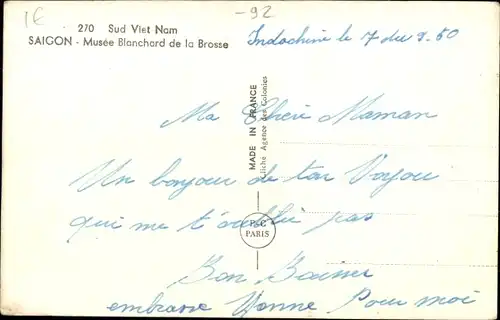 1€
-92
270 Sud Viet Nam
SAIGON - Musée Blanchard de la Brosse
Indochine le 7 du 9.50
Ma Cheri Maman
Un bonjour de ton Voyou
qui me t'oublie pas
Bon Baiser
embrasse Yvonne Pour moi
MADE IN FRANCE
Cliché Agence des Colonies
PARIS